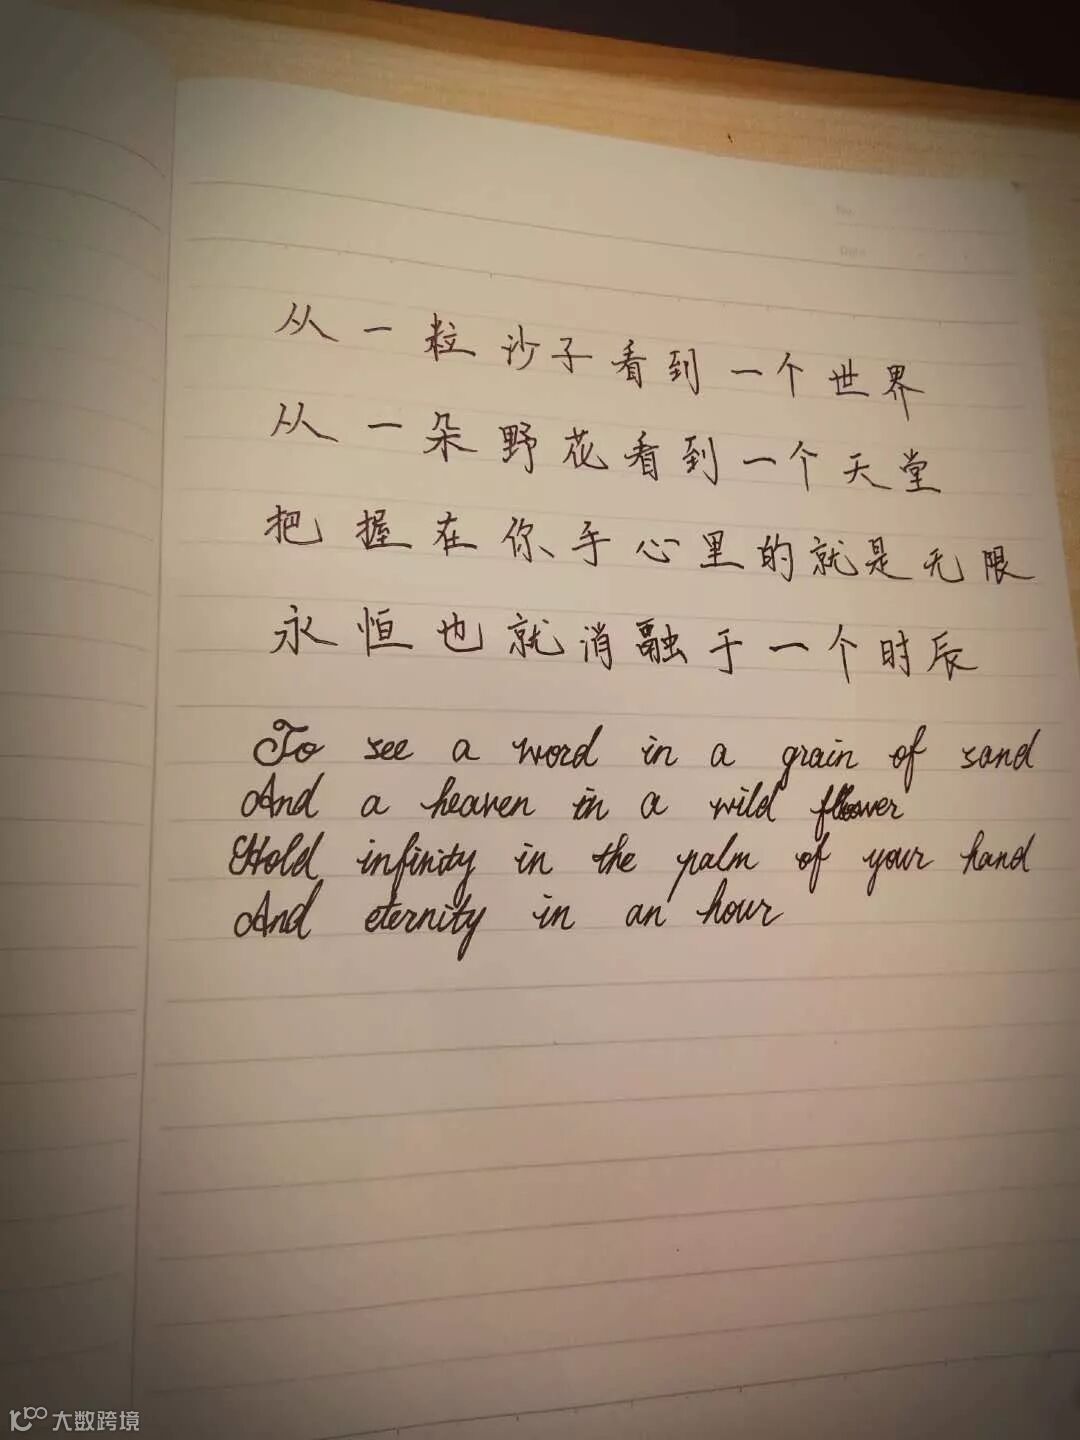 从一粒沙子看到一个世界
从一朵野花看到一个天堂
把握在你手心里的就是无限
永恒也就消融于一个时辰
To see a word in a grain of sand
And a heaven in a wild flower
Hold infinity in the palm of your hand
And eternity in an hour
大数跨境